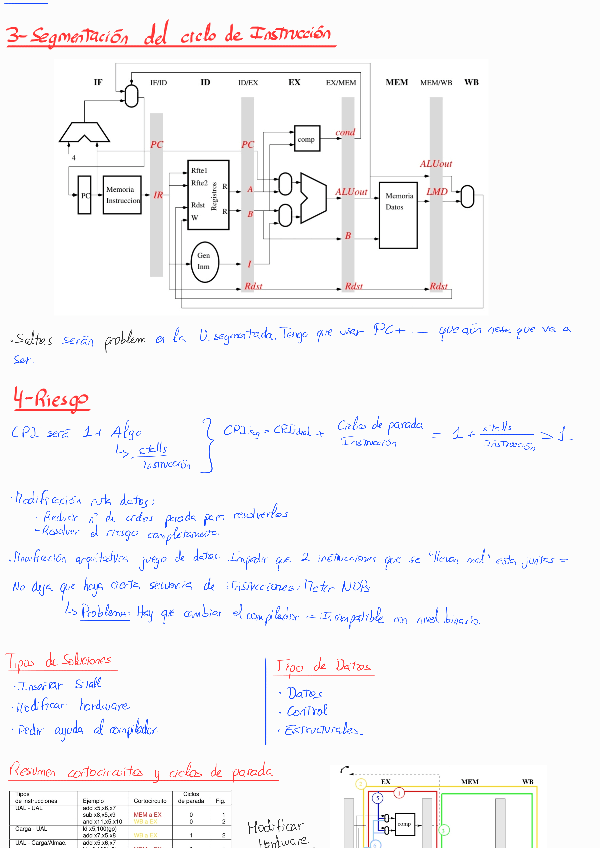 3-Segmentación del ciclo de Instrucción
IF IF/ID ID ID/EX EX EX/MEM MEM MEM/WB WB
4
PC
Memoria
Instruccion
PC
IR
Rfte1
Rfte2
Rdst
W
Registros
R
R
Gen
Inm
PC
A
B
I
Rdst
comp
cond
ALUout
B
Rdst
Memoria
Datos
ALUout
LMD
Rdst
.Saltos serán problem a la U. segmentada. Tengo que usar PC+ que aún que va a
ser.
4-Riesgo
CPI será 1+ Algo
↳ stalls
Instrucción
CPI seg = CPI ideal + Ciclos de parada
Instrucción
= 1 + stalls
Instrucción
> 1.
·Modificación ruta datos:
· Reducir nº de ciclos parada para resolverlos
- Resolver el riesgo completamente.
.Modificación arquitectura juego de datos. Impedir que 2 instrucciones que se "llevan mal" esten juntas =
No deja que haya cierta secuencia de instrucciones: Meter NOPs
↳ Problema: Hay que cambiar el compilador = Incompatible con nivel binario.
Tipos de Soluciones
· Insertar Stall
·Modificar hardware
· Pedir ayuda al compilador
Tipo de Datos
· Datos
· Control
· Estructurales
Resumen cortocircuitos y ciclos de parada
Tipos
de instrucciones Ejemplo Cortocircuito Ciclos
de parada Fig.
UAL - UAL add x5,x6,x7
sub x8,x5,x9 MEM a EX 0 1
and x11,x5,x10 WB a EX 0 2
Carga - UAL ld x5,100(gp)
add x7,x5,x8 WB a EX 1 2
UAL - Carga/Almac. add x5,x6,x7
Modificar
Hardware
EX MEM WB
comp